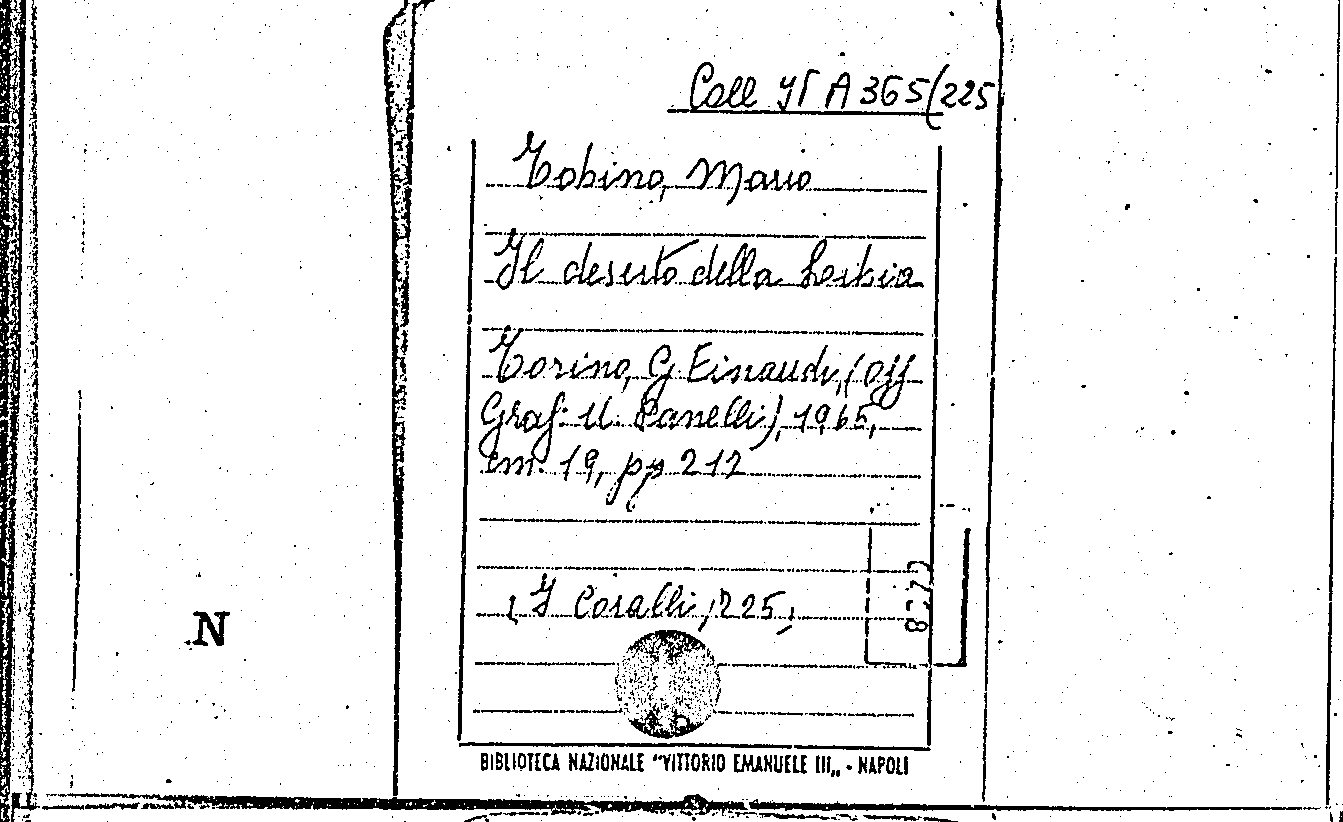 Coll It A 365(225
Tobino, Mario
Il deserto della Lorbia
Torino, G Einaudi, (off
Graf. U. Panelli), 1965,
cm. 19, pp 212
(I Coralli, 225)
N
BIBLIOTECA NAZIONALE "VITTORIO EMANUELE III„ - NAPOLI